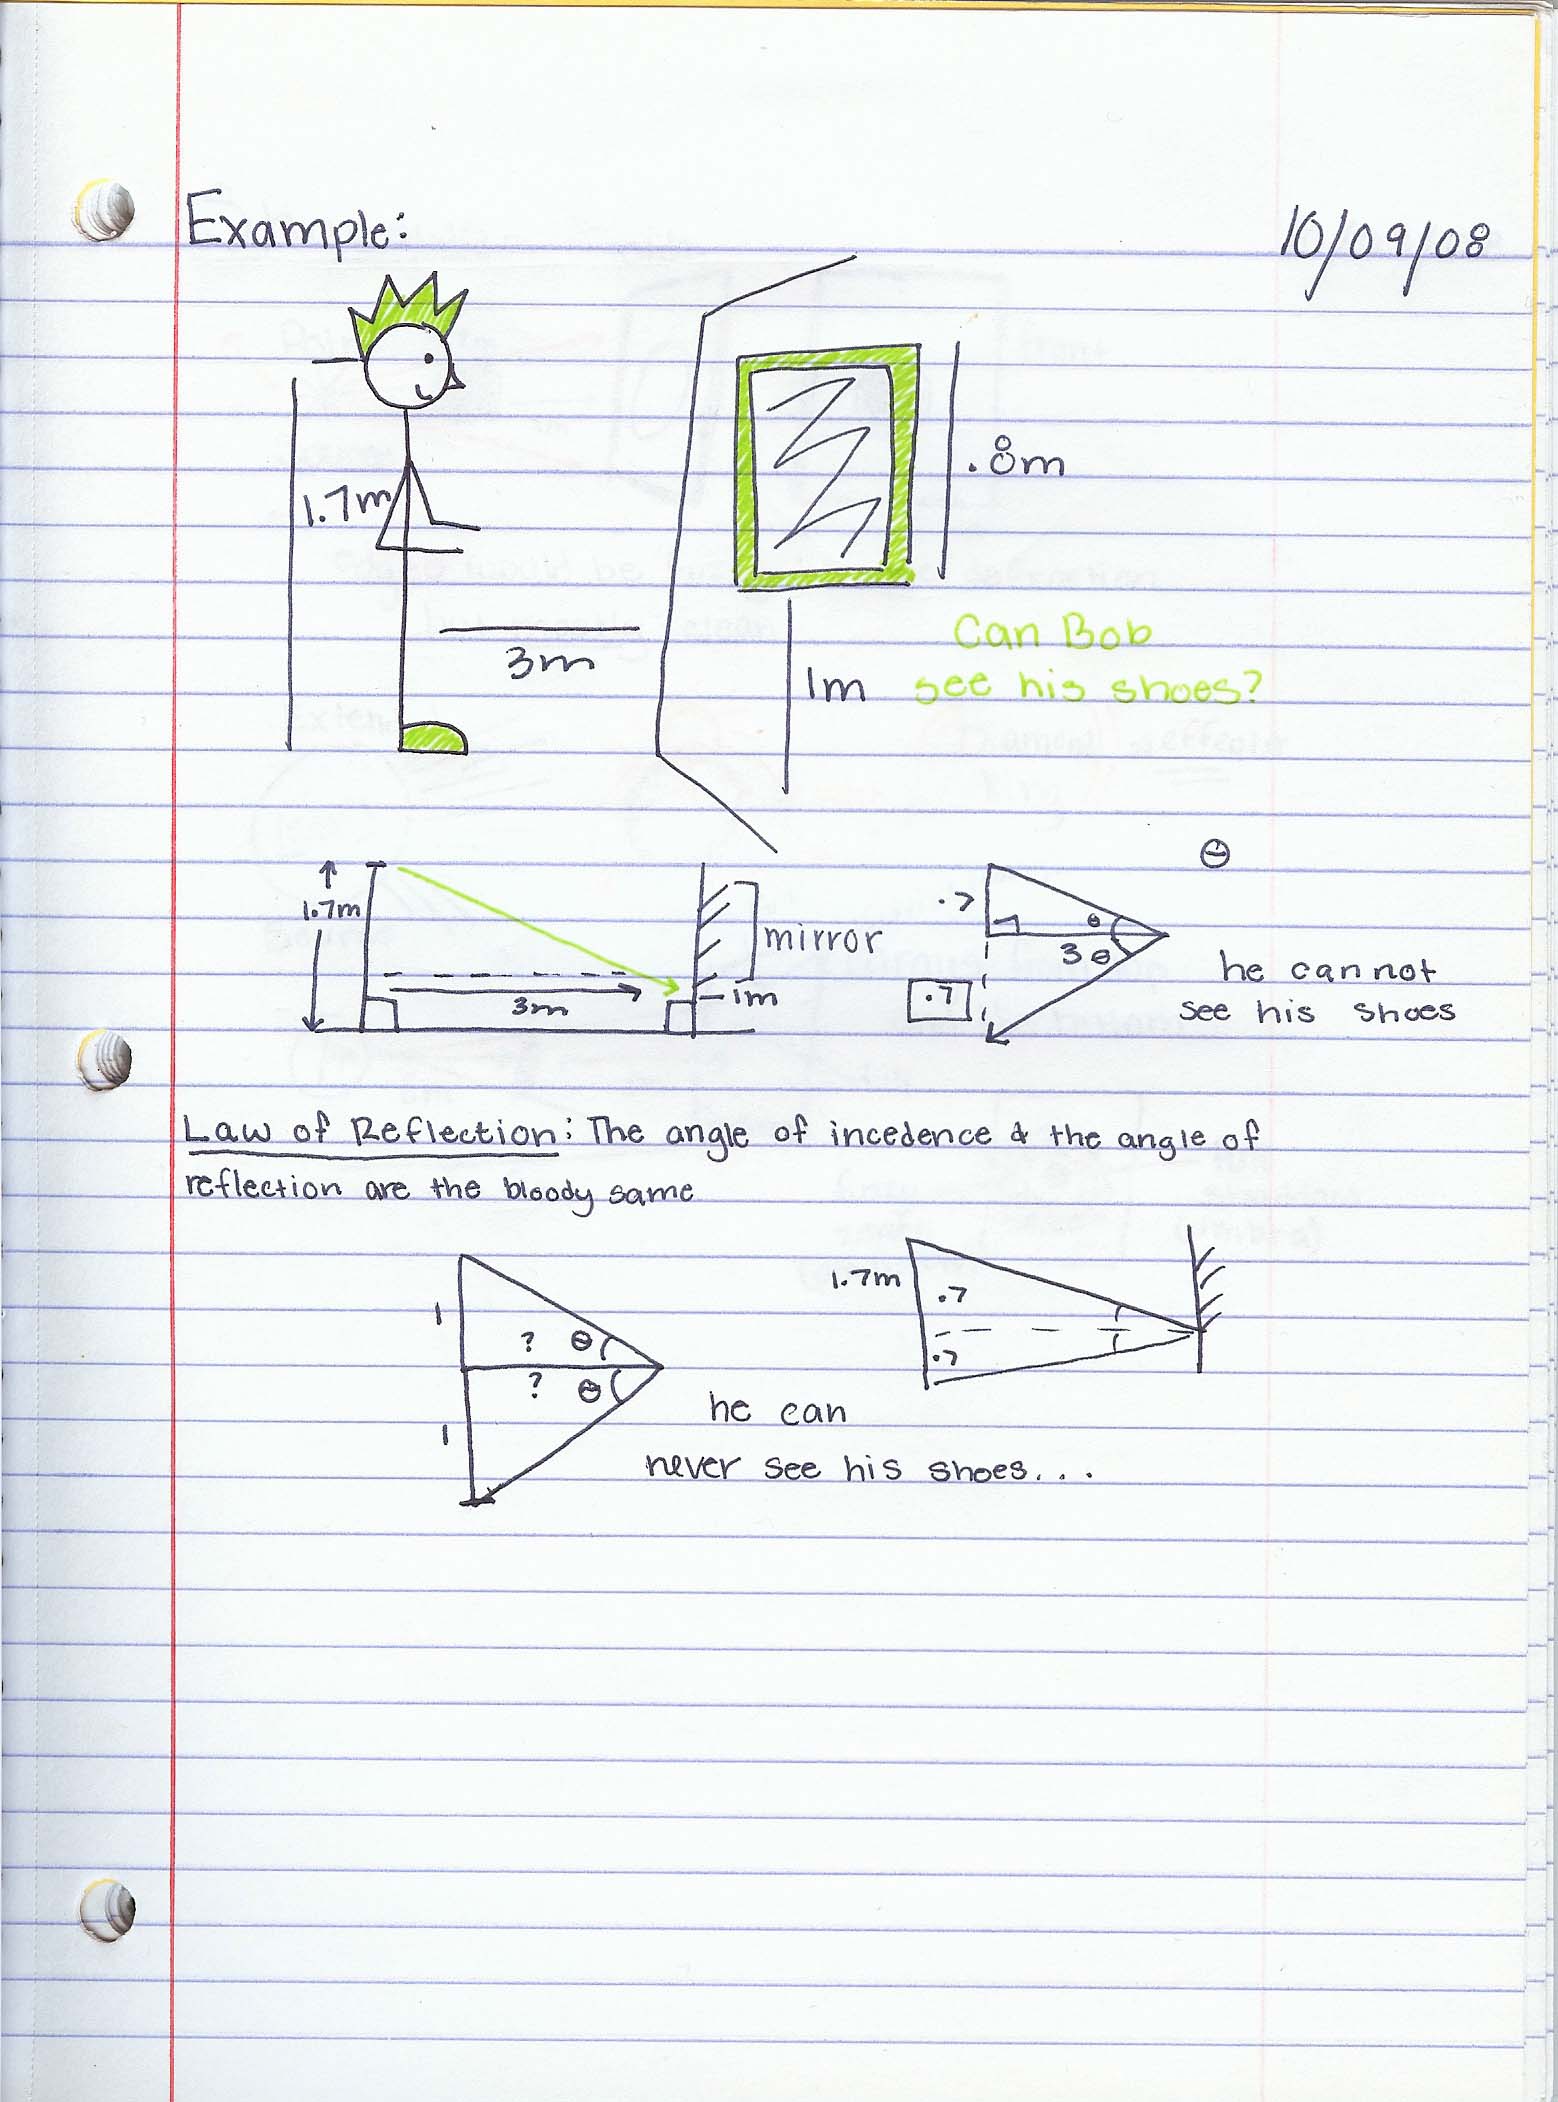 Example:
10/09/08
1.7m
.8m
3m
1m
Can Bob
see his shoes?
1.7m
3m
mirror
1m
θ
.7
θ
3 θ
.7
he cannot
see his shoes
Law of Reflection: The angle of incedence & the angle of
reflection are the bloody same
1
? θ
? θ
1
1.7m
.7
.7
he can
never see his shoes...